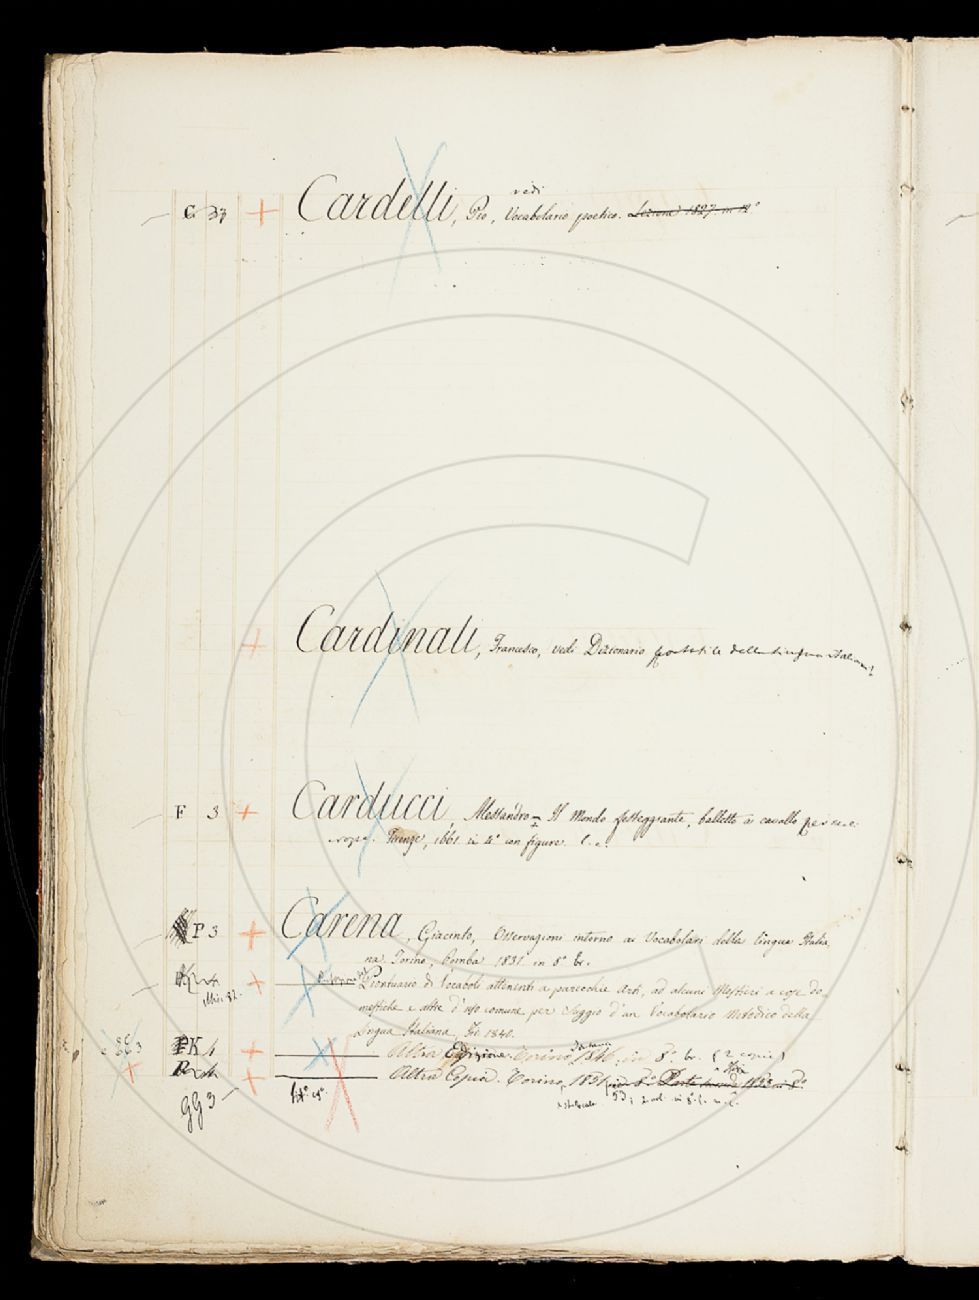 vedi
G 37 + Cardelli, Pio, Vocabolario poetico. 1827 in 12°
+ Cardinali, Francesco, vedi Dizionario portatile della lingua italiana
F 3 + Carducci, Alessandro = Il Mondo festeggiante, balletto a cavallo
Firenze, 1661 in 4° con figure.
P 3 + Carena, Giacinto, Osservazioni intorno ai Vocabolari della lingua Italia
na Torino, Pomba 1831 in 8° br.
+ Prontuario di Vocaboli attenenti a parecchie Arti, ad alcuni Mestieri a cose do
mestiche e altre d'uso comune per Saggio d'un Vocabolario Metodico della
Lingua Italiana 1840.
K 4 + Altra Edizione. Torino 1846, in 8° br. (2 copie)
+ Altra Copia. Torino, 1851 in 8° Parte 1853 in 8°
GG 3 53; 2 vol. in 8.